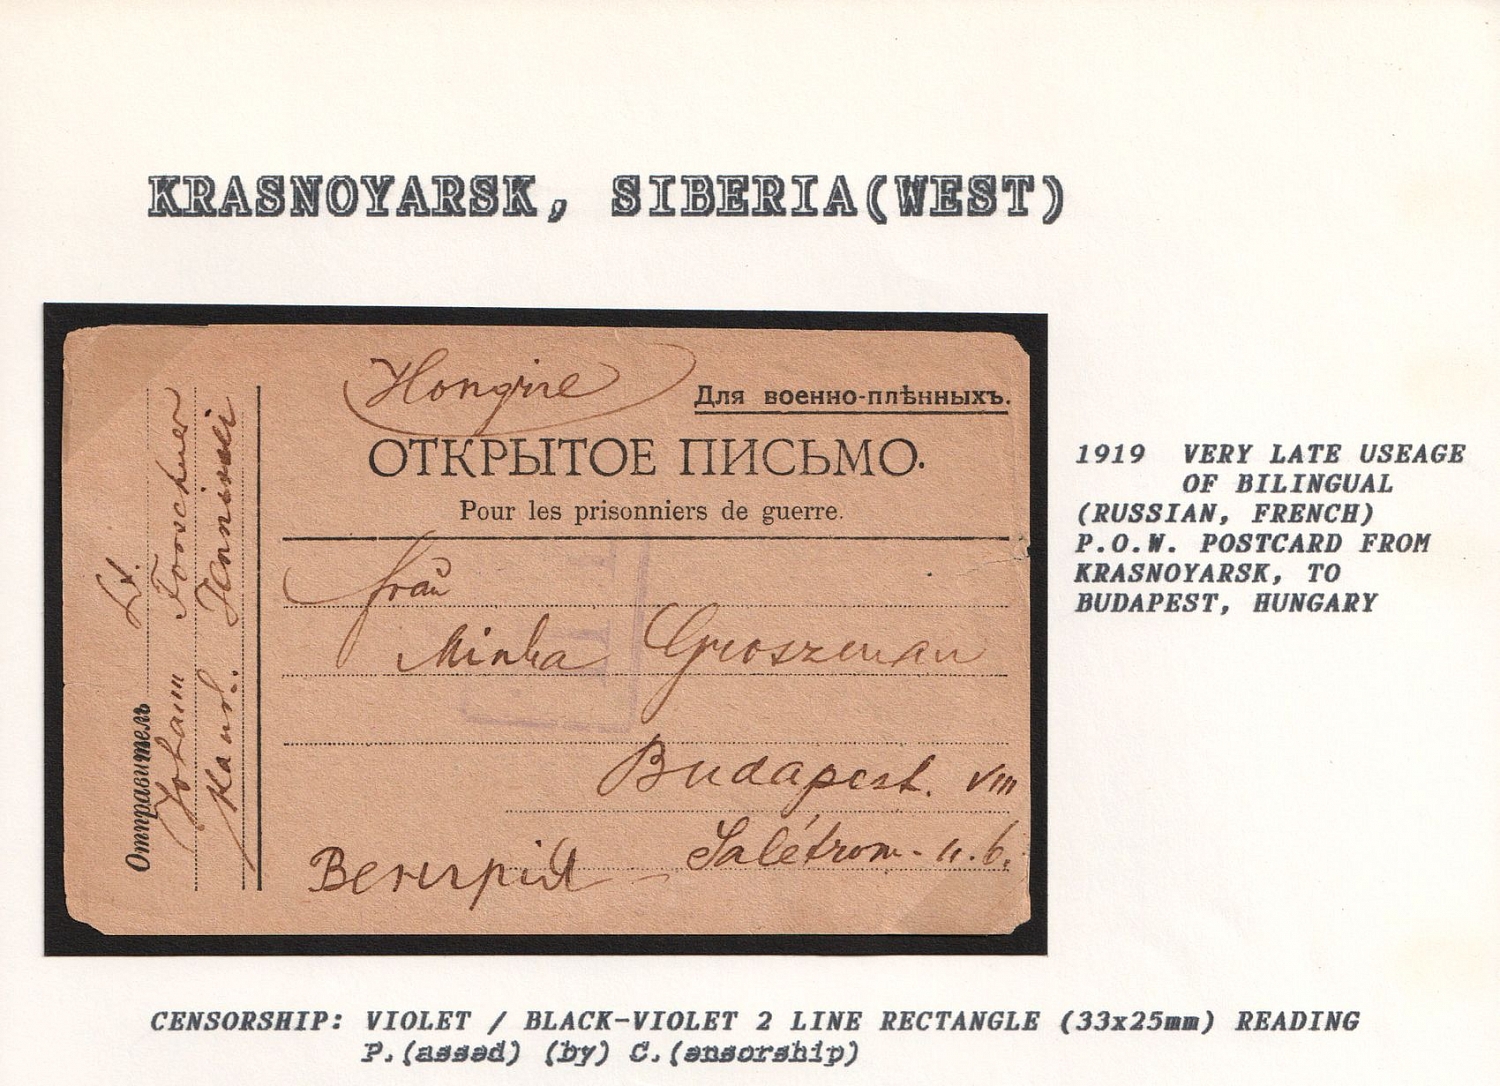 KRASNOYARSK, SIBERIA(WEST)
Hongrie
Для военно-плѣнныхъ.
ОТКРЫТОЕ ПИСЬМО.
Pour les prisonniers de guerre.
Frau
Minka Groszman
Budapest. VIII
Salétrom-u. 6.
Венгрія
Отправитель
Lt.
Johann Forschner
1919 VERY LATE USEAGE
OF BILINGUAL
(RUSSIAN, FRENCH)
P.O.W. POSTCARD FROM
KRASNOYARSK, TO
BUDAPEST, HUNGARY
CENSORSHIP: VIOLET / BLACK-VIOLET 2 LINE RECTANGLE (33x25mm) READING
P.(assed) (by) C.(ensorship)